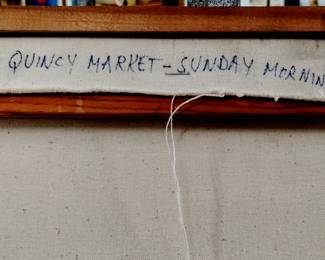 QUINCY MARKET - SUNDAY MORNIN